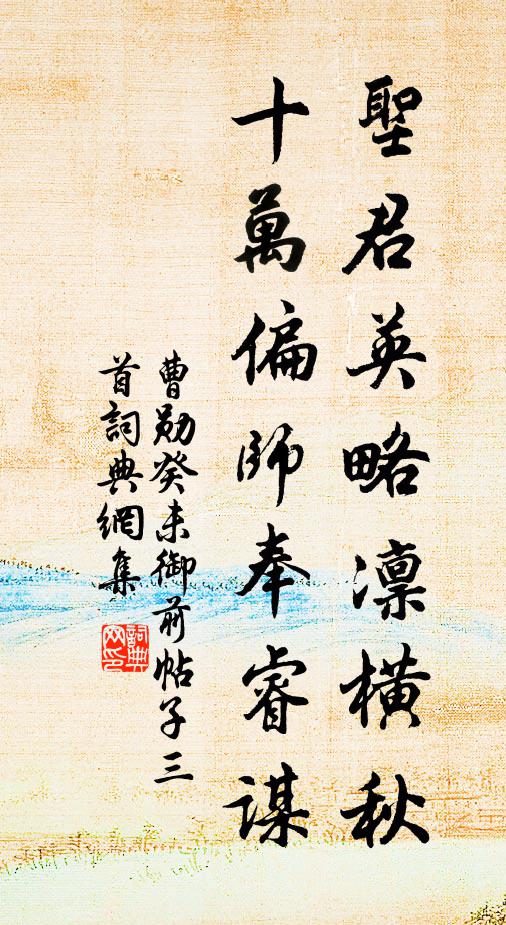 聖君英略凛橫秋
十萬偏師奉睿謀
曹勛癸未御前帖子三
首詞典網集
詞典網印